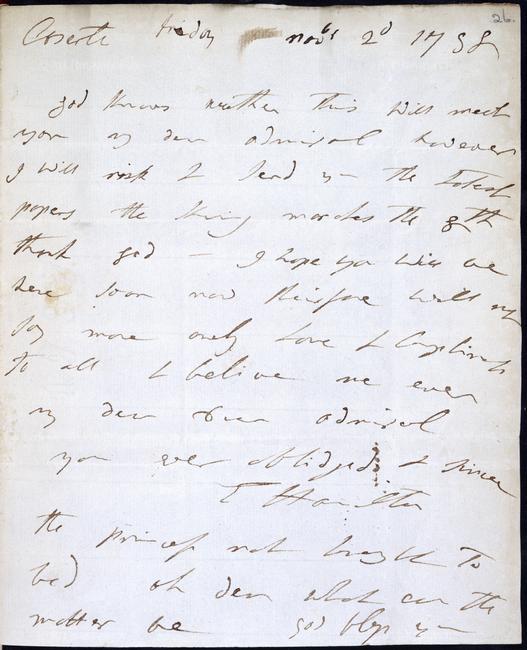 26.
Caserta friday novbr 2d 1798
god knows wether this will meet
you my dear admiral however
I will risk & send you the latest
papers the king marches the 8th
thank god — I hope you will be
here soon now therefore will not
say more only Love & Compliments
to all & believe me ever
my dear dear admiral
your ever obliged & sincere
E Hamilton
the princess not brought to
bed oh dear what can the
matter be god bless you